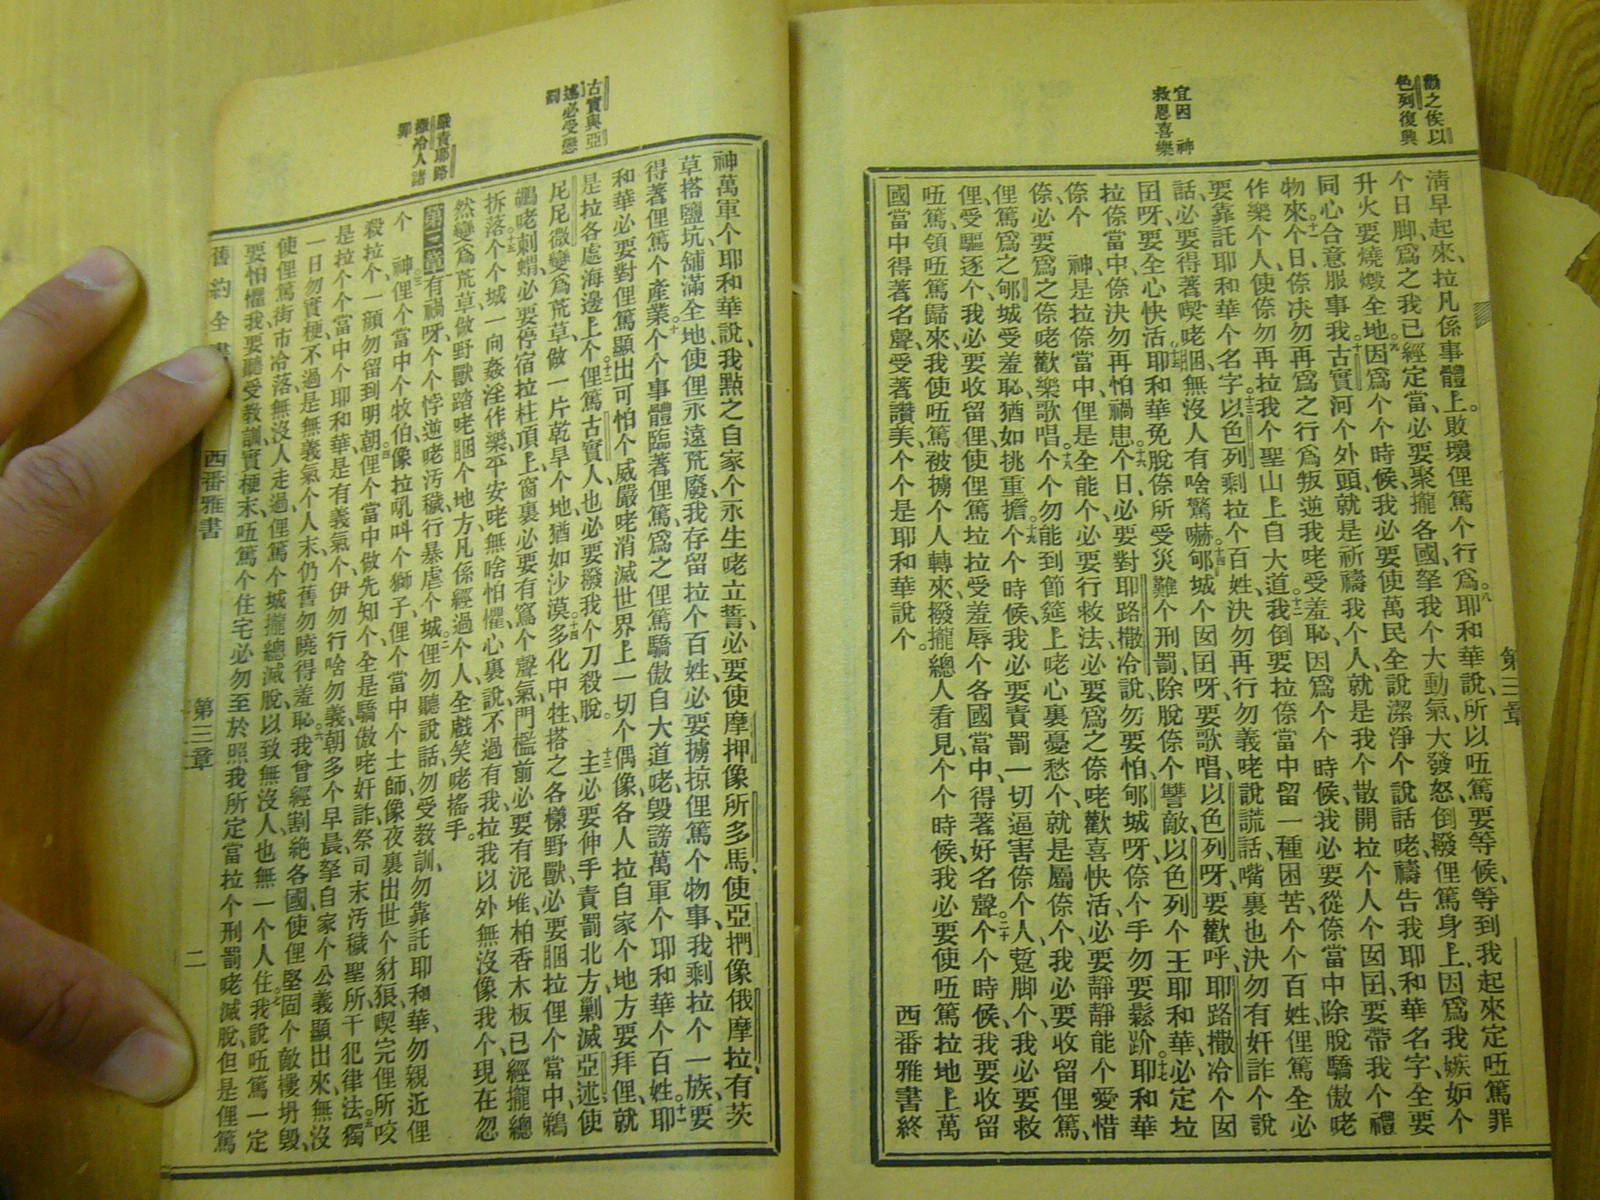 古實與亞
述必受懲
罰
嚴責耶路
撒冷人諸
罪
神萬軍个耶和華說、我點之自家个永生咾立誓、必要使摩押像所多馬、使亞捫像俄摩拉、有茨
草搭鹽坑、舖滿全地、使俚永遠荒廢、我存留拉个百姓、必要擄掠俚篤个物事、我剩拉个一族、要
得著俚篤个產業。十个个事體臨著俚篤、爲之俚篤驕傲自大道咾、毀謗萬軍个耶和華个百姓。十一耶
和華必要對俚篤顯出可怕个威嚴咾消滅世界上一切个偶像、各人拉自家个地方要拜俚、就
是拉各處海邊上个。十二俚篤古實人、也必要撥我个刀殺脫。十三主必要伸手責罰北方、剿滅亞述、使
尼尼微變爲荒草、做一片乾旱个地、猶如沙漠。十四多化中牲搭之各樣野獸、必要䀣拉俚个當中、鵜
鶘咾刺蝟、必要停宿拉柱頂上、窗裏必要有窩个聲氣、門檻前必要有泥堆、柏香木板、已經攏總
拆落个。十五个个城、一向姦淫作樂、平安咾、無啥怕懼、心裏說、不過有我、拉我以外無沒像我个、現在忽
然變爲荒草、做野獸踏咾䀣个地方、凡係經過个人、全戲笑咾搖手。
第三章有禍呀、个个悖逆咾汚穢行暴虐个城。二俚勿聽說話、勿受教訓、勿靠託耶和華、勿親近俚
个　神。三俚个當中个牧伯、像拉吼呌个獅子、俚个當中个士師、像夜裏出世个豺狼、喫完俚所咬
殺拉个、一顔勿留到明朝。四俚个當中做先知个、全是驕傲咾奸詐、祭司末汚穢聖所、干犯律法。五獨
是拉个个當中个耶和華、是有義氣个、伊勿行啥勿義、朝多个早晨、拏自家个公義顯出來、無沒
一日勿實梗、不過是無義氣个人末、仍舊勿曉得羞恥。六我曾經割絶各國、使俚堅固个敵樓坍毀、
使俚篤街市冷落、無沒人走過、俚篤个城攏總滅脫、以致無沒人、也無一个人住。七我說、㕶篤一定
要怕懼我、要聽受教訓、實梗末、㕶篤个住宅、必勿至於照我所定當拉个刑罰咾滅脫、但是俚篤
舊約全書
西番雅書
第三章
二
勸之俟以
色列復興
宜因　神
救恩喜樂
第三章
清早起來、拉凡係事體上、敗壞俚篤个行爲。八耶和華說、所以㕶篤要等候、等到我起來定㕶篤罪
个日脚、爲之我已經定當、必要聚攏各國、拏我个大動氣、大發怒、倒撥俚篤身上、因爲我嫉妒个
升火、要燒燬全地。九因爲个个時候、我必要使萬民全說潔淨个說話咾禱告我耶和華名字、全要
同心合意服事我。十古實河个外頭、就是祈禱我个人、就是我个散開拉个人个囡囝、要帶我个禮
物來。十一个日、倷决勿再爲之行爲叛逆我咾受羞恥、因爲个个時候、我必要從倷當中除脫驕傲咾
作樂个人、使倷勿再拉我个聖山上自大道。十二我倒要拉倷當中留一種困苦个个百姓、俚篤全必
要靠託耶和華个名字。十三以色列剩拉个百姓、決勿再行勿義咾說謊話、嘴裏也決勿有奸詐个說
話、必要得著喫咾䀣、無沒人有啥驚嚇。十四郇城个囡囝呀、要歌唱、以色列呀、要歡呼、耶路撒冷个囡
囝呀、要全心快活。十五耶和華免脫倷所受災難个刑罰、除脫倷个讐敵、以色列个王耶和華、必定垃
拉倷當中、倷決勿再怕禍患。十六个日必要對耶路撒冷說、勿要怕、郇城呀、倷个手勿要鬆、十七耶和華
倷个　神、是拉倷當中、俚是全能个、必要行救法、必要爲之倷咾歡喜快活、必要靜靜能个愛惜
倷、必要爲之倷咾歡樂歌唱。十八个个勿能到節筵上咾心裏憂愁个、就是屬倷个、我必要收留俚篤、
俚篤爲之郇城受羞恥、猶如挑重擔个。十九个時候、我必要責罰一切逼害倷个人、蹔脚个、我必要救
俚、受驅逐个、我必要收留俚、使俚篤垃拉受羞辱个各國當中、得著好名聲个。二十个時候、我要收留
㕶篤、領㕶篤歸來、我使㕶篤被擄个人轉來、撥攏總人看見、个个時候、我必要使㕶篤拉地上萬
國當中得著名聲、受著讚美、个个是耶和華說个。
西番雅書終